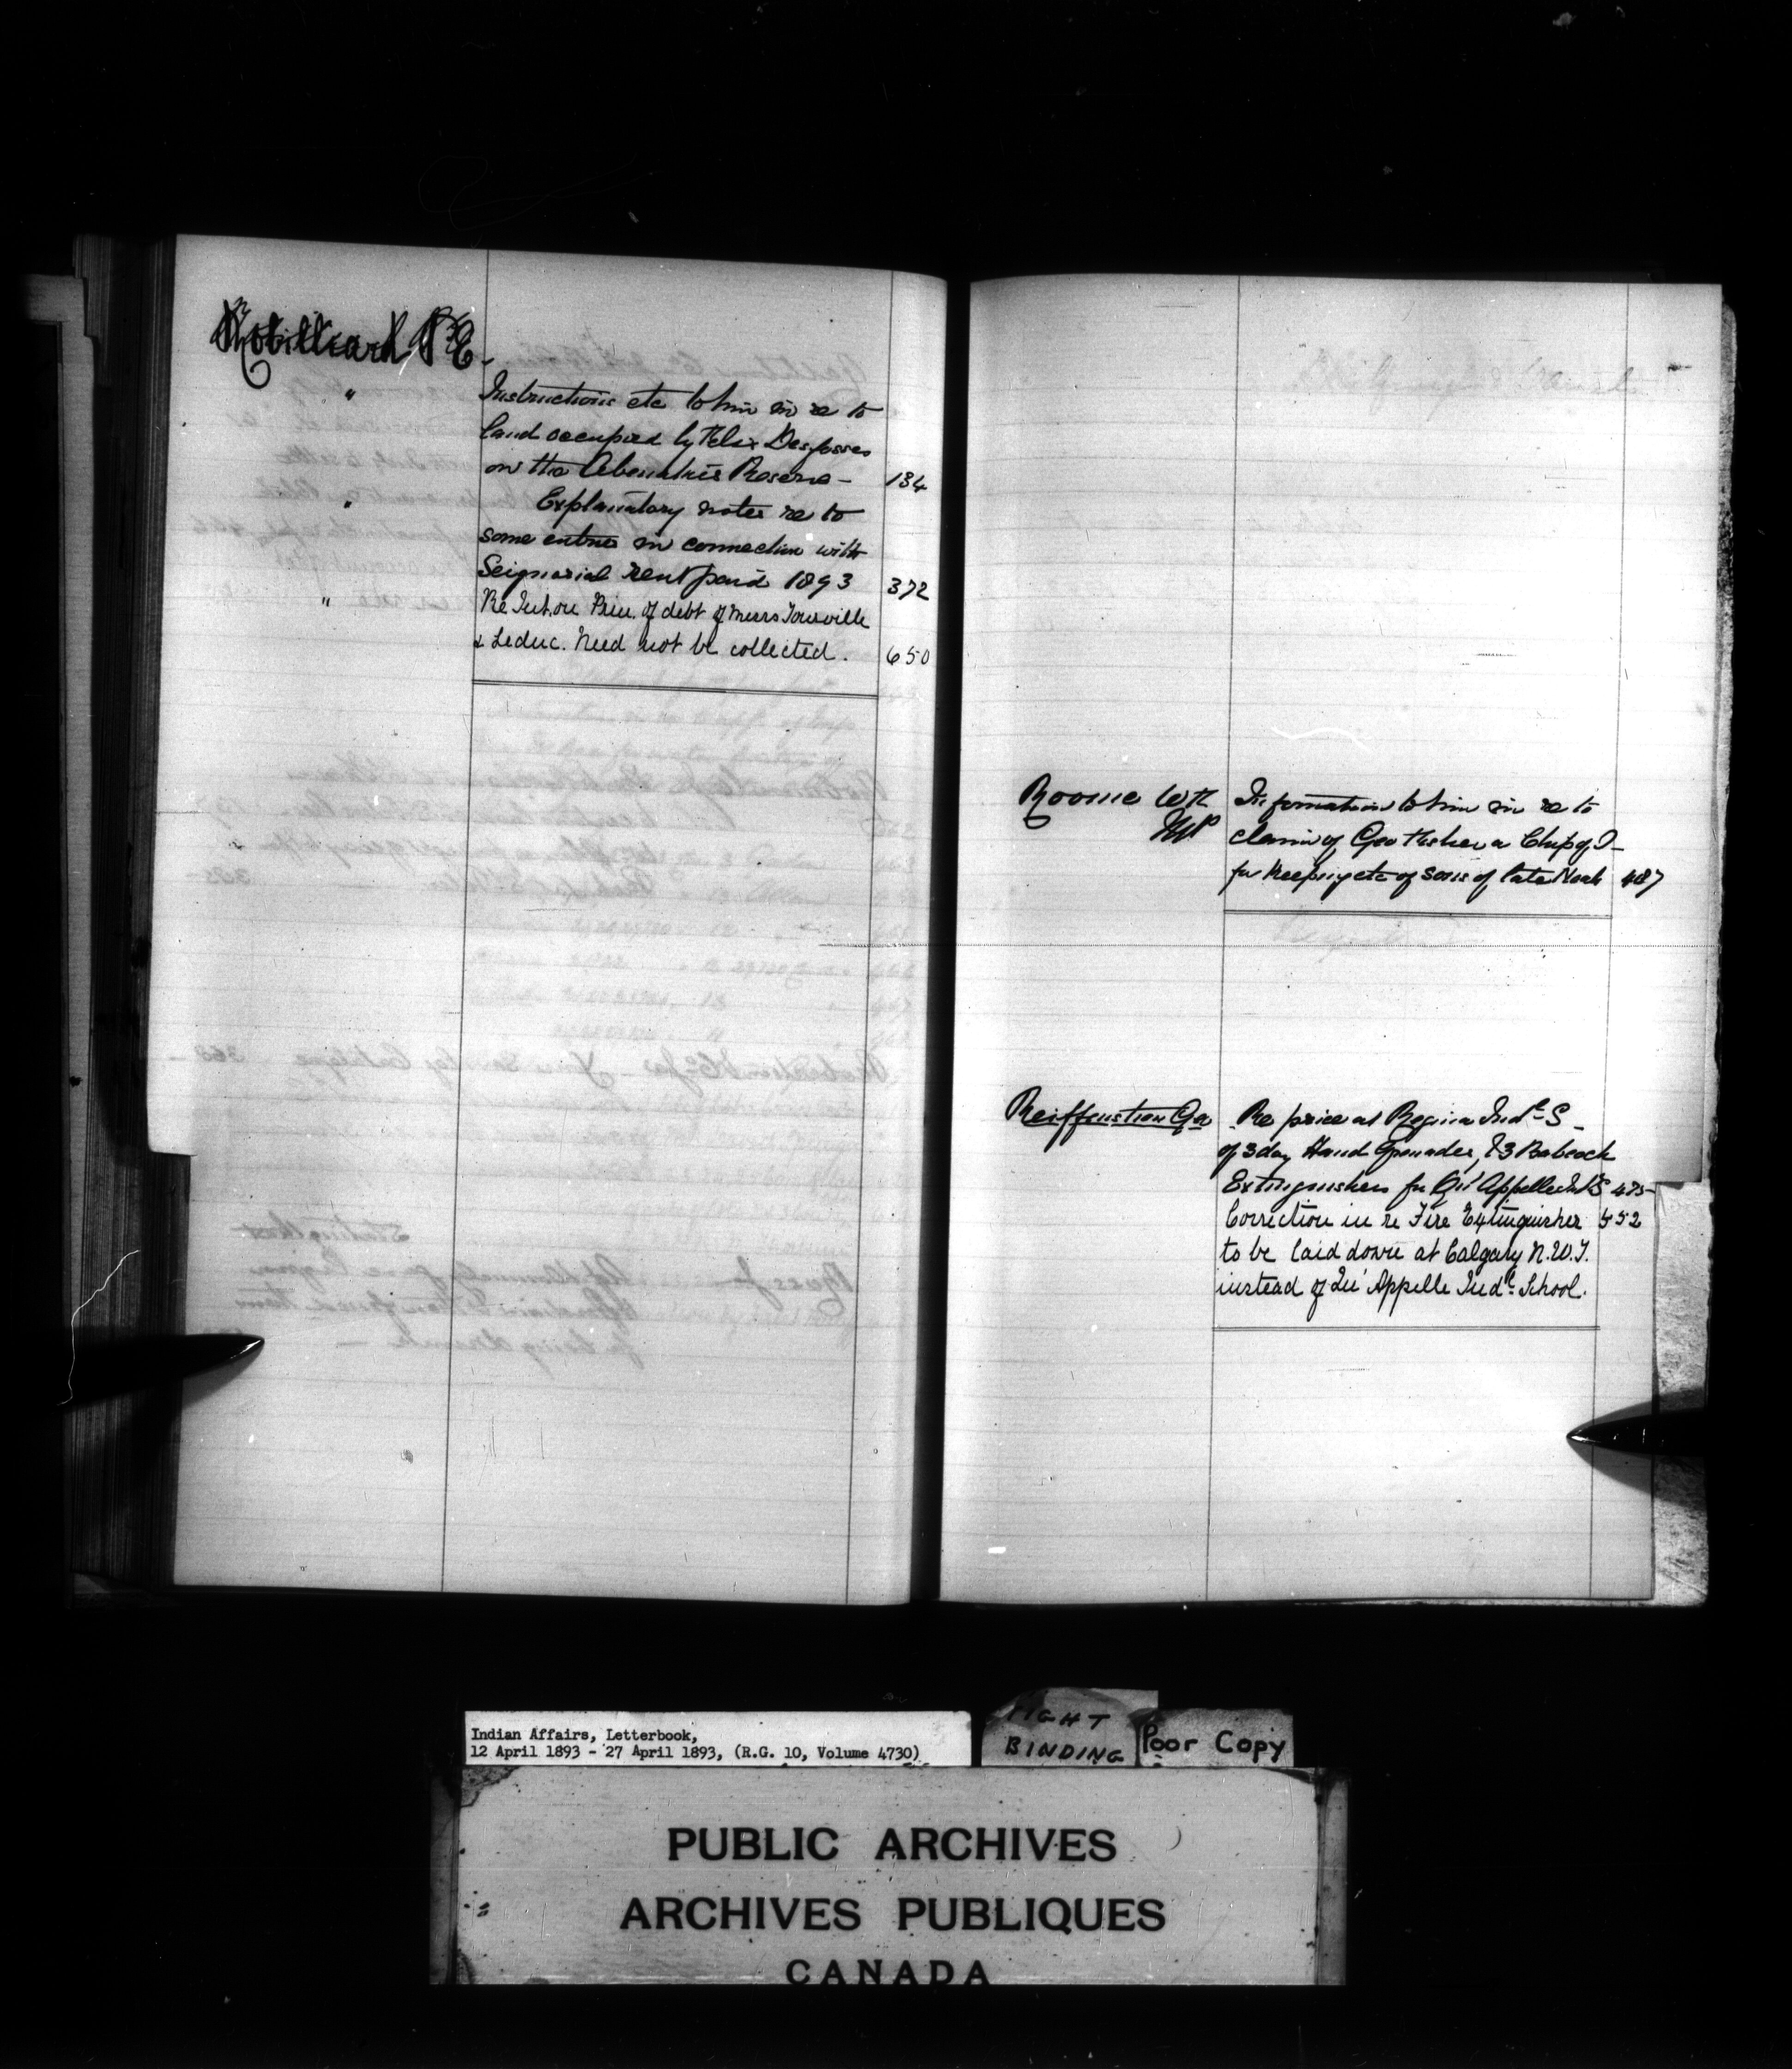 Robillard P. E.
" Instructions etc to him in re to
land occupied by Felix Desfosses
on the Abenakis Reserve — 134
" Explanatory notes re to
some entries in connection with
Seignorial rent paid 1893 372
" Re Int. on Prin. of debt of Messrs Tourville
& Leduc. Need not be collected. 650
Roome W F Information to him in re to
MP claim of Geo Fisher a Chip of I—
for keeping etc of sons of late Noah 487
Reiffenstein Geo Re price at Regina Indl S—
of 3 doz Hand Grenades, & 3 Babcock
Extinguishers for Qu'Appelle Indl S 475
Correction in re Fire Extinguisher 552
to be laid down at Calgary N.W.T.
instead of Qu'Appelle Indl School.
Indian Affairs, Letterbook,
12 April 1893 - 27 April 1893, (R.G. 10, Volume 4730)
TIGHT
BINDING
Poor Copy
PUBLIC ARCHIVES
ARCHIVES PUBLIQUES
CANADA